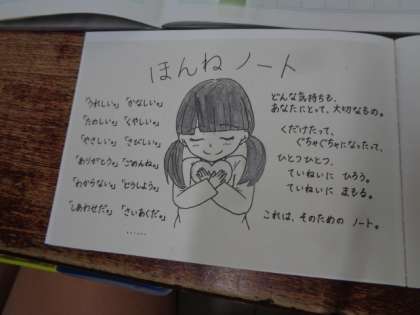 ほんねノート
「うれしい。」「かなしい。」
「たのしい。」「くやしい。」
「やさしい。」「さびしい。」
「ありがとう。」「ごめんね。」
「わからない。」「どうしよう。」
「しあわせだ。」「さいあくだ。」
……
どんな気持ちも、
あなたにとって、大切なもの。
くだけたって、
ぐちゃぐちゃになったって、
ひとつひとつ、
ていねいに ひろう。
ていねいに まもる。
これは、そのための ノート。